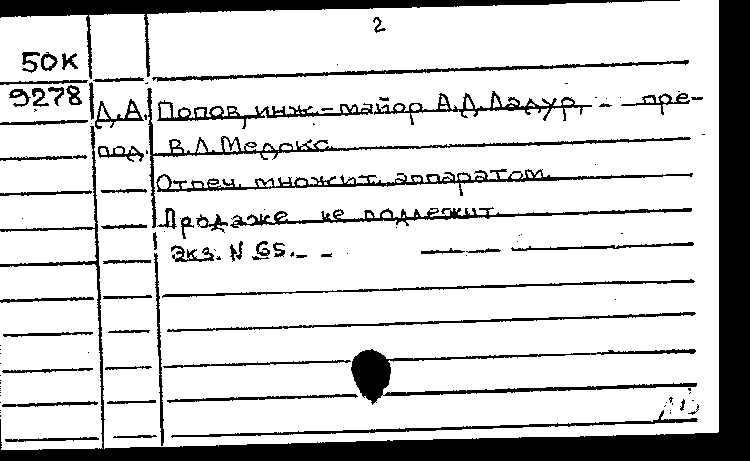 2
50К
9278 Д.А. Попов, инж.-майор А.Д.Ладур, - пре-
под. В.Л.Медокс.
Отпеч. множит. аппаратом.
Продаже не подлежит.
Экз. N 65. - -